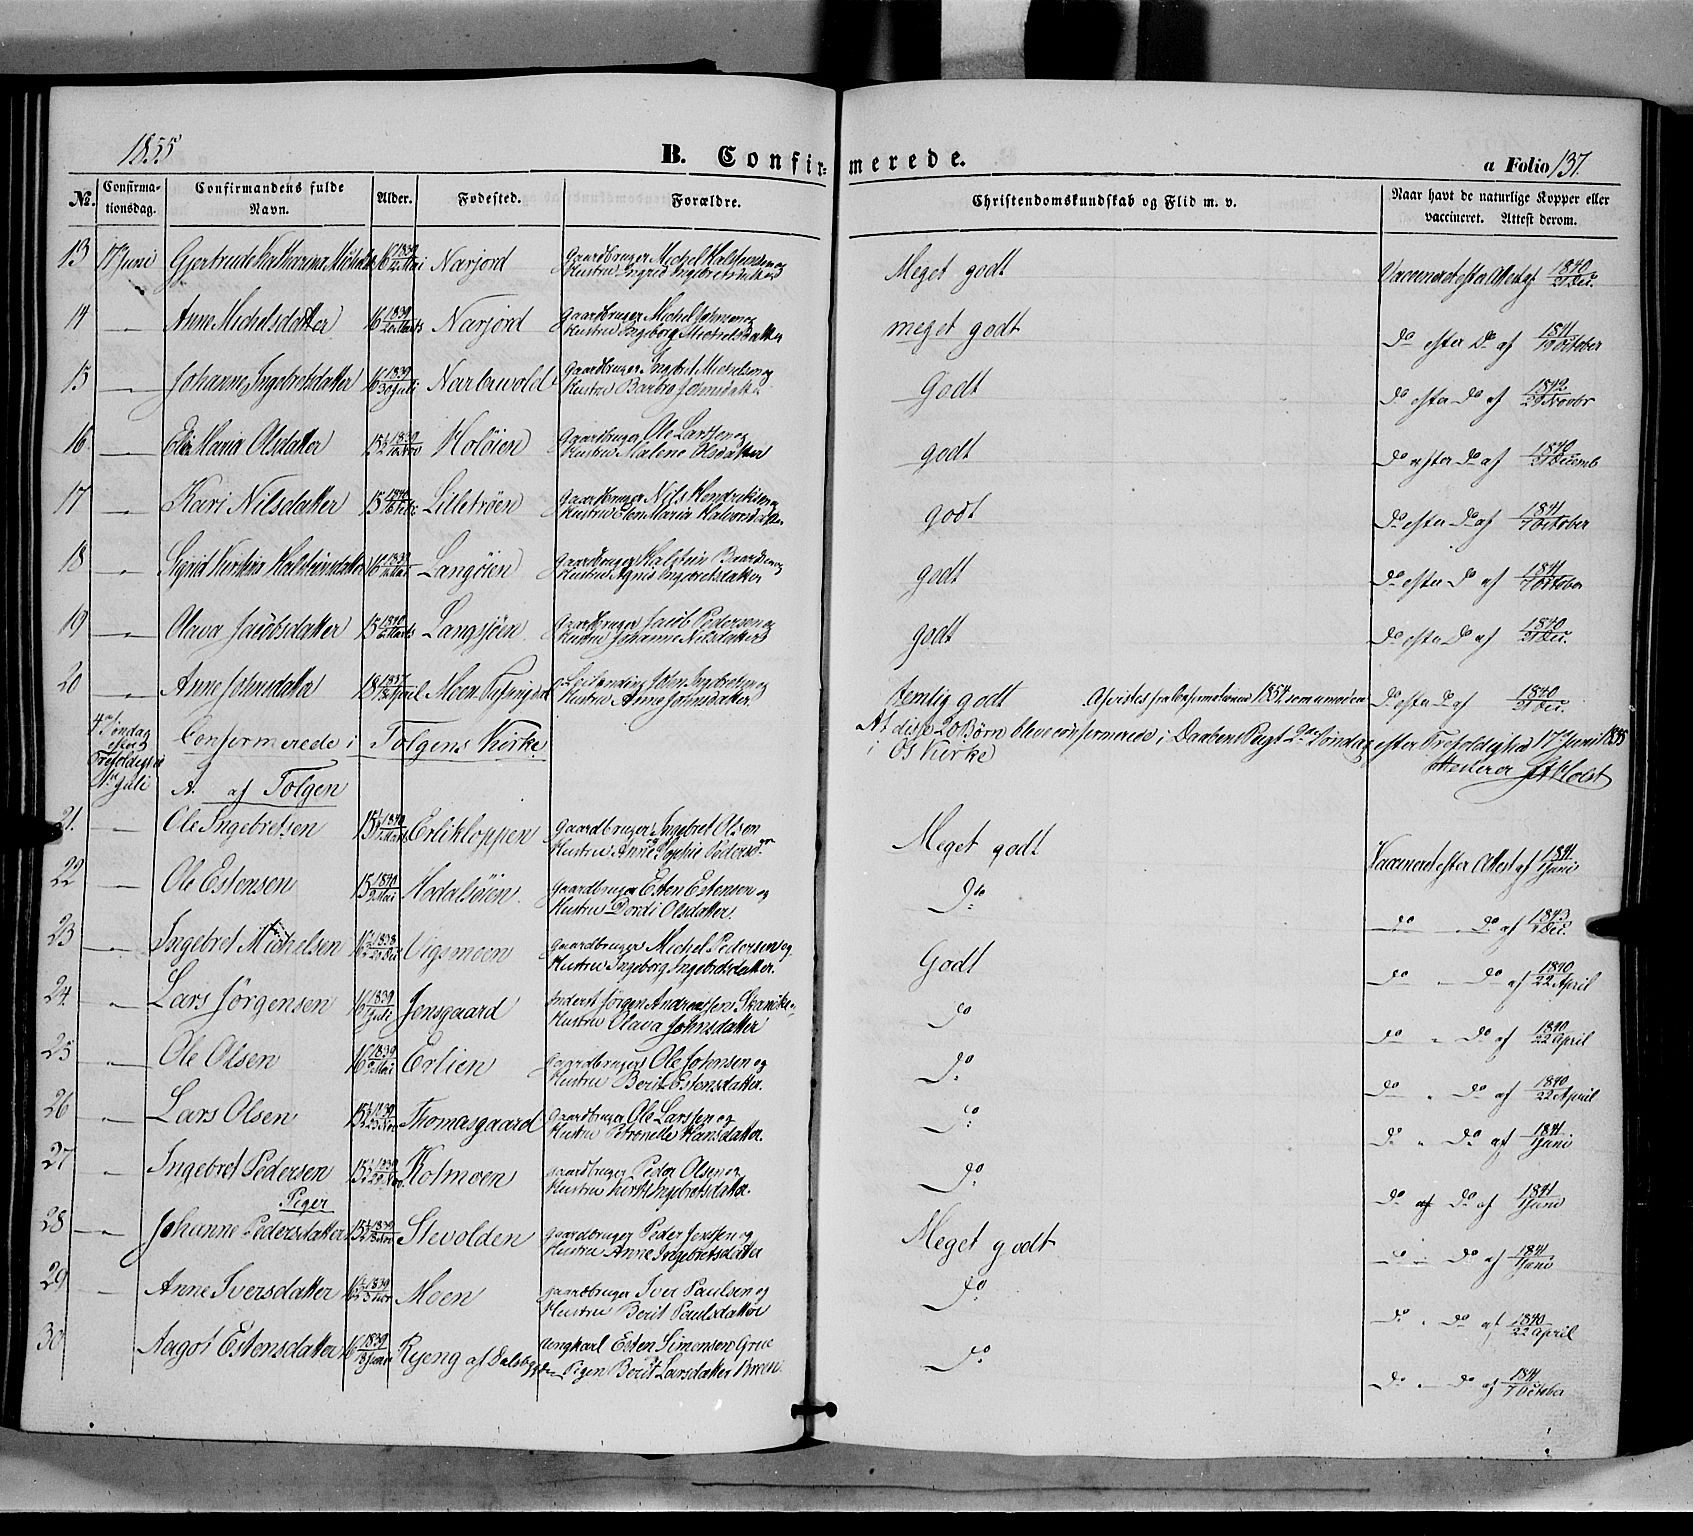 1855
B. Confirmerede.
a Folio 137.
No. Confirmationsdag. Confirmandens fulde Navn. Alder. Fødested. Forældre. Christendomskundskab og Flid m. v. Naar havt de naturlige Kopper eller vaccineret. Attest derom.
13 17 Juni Gjertrude Katharina Michelsd 16 1839 Mai Narjord Gaardbruger Michel Halstensen og Hustru Ingrid Ingebretsdatter Meget godt Vaccineret efter Attest af 1840 21 Dec.
14 " Anne Michelsdatter 16 1839 Marts Narjord Gaardbruger Michel Johnsen og Hustru Ingeborg Michelsdatter meget godt Do efter Do af 1841 10 October
15 " Johanne Ingebretsdatter 16 1839 30 Juli Narbuvold Gaardbruger Ingebret Michelsen og Hustru Barbro Johnsdatter Godt Do efter Do af 1842 29 Novbr
16 " Eli Maria Olsdatter 15 1/2 1839 Nov Holøien Gaardbruger Ole Larssen og Hustru Malene Olsdatter godt Do efter Do af 1840 21 Decemb
17 " Kari Nilsdatter 15 1840 Lilletrøen Gaardbruger Nils Hendriksen og Hustru Elen Maria Halvorsdatter godt Do efter Do af 1841 7 October
18 " Sigrid Kirstine Halsteinsdatter 16 1839 Langøien Gaardbruger Halstein Baardsen og Hustru Agnis Ingebretsdatter godt Do efter Do af 1841 7 October
19 " Olava Jacobsdatter 15 1840 6 Marts Langsjøen Gaardbruger Jacob Pedersen og Hustru Johanne Nilsdatter godt Do efter Do af 1840 21 Dec.
20 " Anne Johnsdatter 18 1837 April Moen John Ingebretsen og Hustru Anna Johnsdatter. temlig godt Afvistes fra Confirmationen 1854 som umoden Do efter Do af 1840 21 Dec.
At disse 20 Børn bleve confirmerede i Daabens Pagt 2den Søndag efter Trefoldighed 17 Juni 1855
i Os Kirke
Attesterer Holst
4de Søndag efter Trefoldighed 1ste Juli Confirmerede i Tolgens Kirke
A. af Tolgen
21. " Ole Ingebretsen 15 1840 Marts Erlikloppen Gaardbruger Ingebret Olsen og Hustru Anne Sophie Pedersdr Meget godt Vaccineret efter Attest af 1841 Juni
22 " Ole Estensen 15 1840 2 Mai Hodalsøien. Gaardbruger Esten Estensen og Hustru Dordi Olsdatter. Do Do " Do af 1843 Dec.
23 " Ingebret Michelsen 16 1/2 1838 Dec Vigsmoen Gaardbruger Michel Pedersen og Hustru Ingeborg Ingebretsdatter. Godt Do " Do af 1840 22 April
24 " Lars Jørgensen 16 1839 Juli Jonsgaard Inderst Jørgen Andreassen Skancke og Hustru Olava Johnsdatter Do Do " Do af 1840 22 April
25 " Ole Olsen 16 1839 Mai Erlien Gaardbruger Ole Johnsen og Hustru Berit Estensdatter. Do Do " Do af 1840 22 April
26 " Lars Olsen 15 1/2 1839 23 Nov Thomasgaard Gaardbruger Ole Larssen og Hustru Petronelle Hansdatter. Do Do " Do af 1841 Juni
27 " Ingebret Pedersen 15 1/2 1839 Nov Kolmoen Gaardbruger Peder Olsen og Hustru Kirsti Ingebretsdatter. Do Do af Do af 1841 Juni
Piger
28 " Johanne Pedersdatter 15 1/2 1839 Nov Stevolden Gaardbruger Peder Jenssen og Hustru Anne Ingebretsdatter Meget godt Do " Do af 1841 Juni
29 " Anne Iversdatter 1839 Moen Gaardbruger Iver Paulsen og Hustru Berit Paulsdatter Do Do " Do af 1840 22 April
30 Aagot Estensdatter 16 1839 18 Juni Ryeng af Dalsbygden Ungkarl Esten Simensen Grue og Pigen Berit Larsdatter Breen Do Do " Do af 1841 7 October